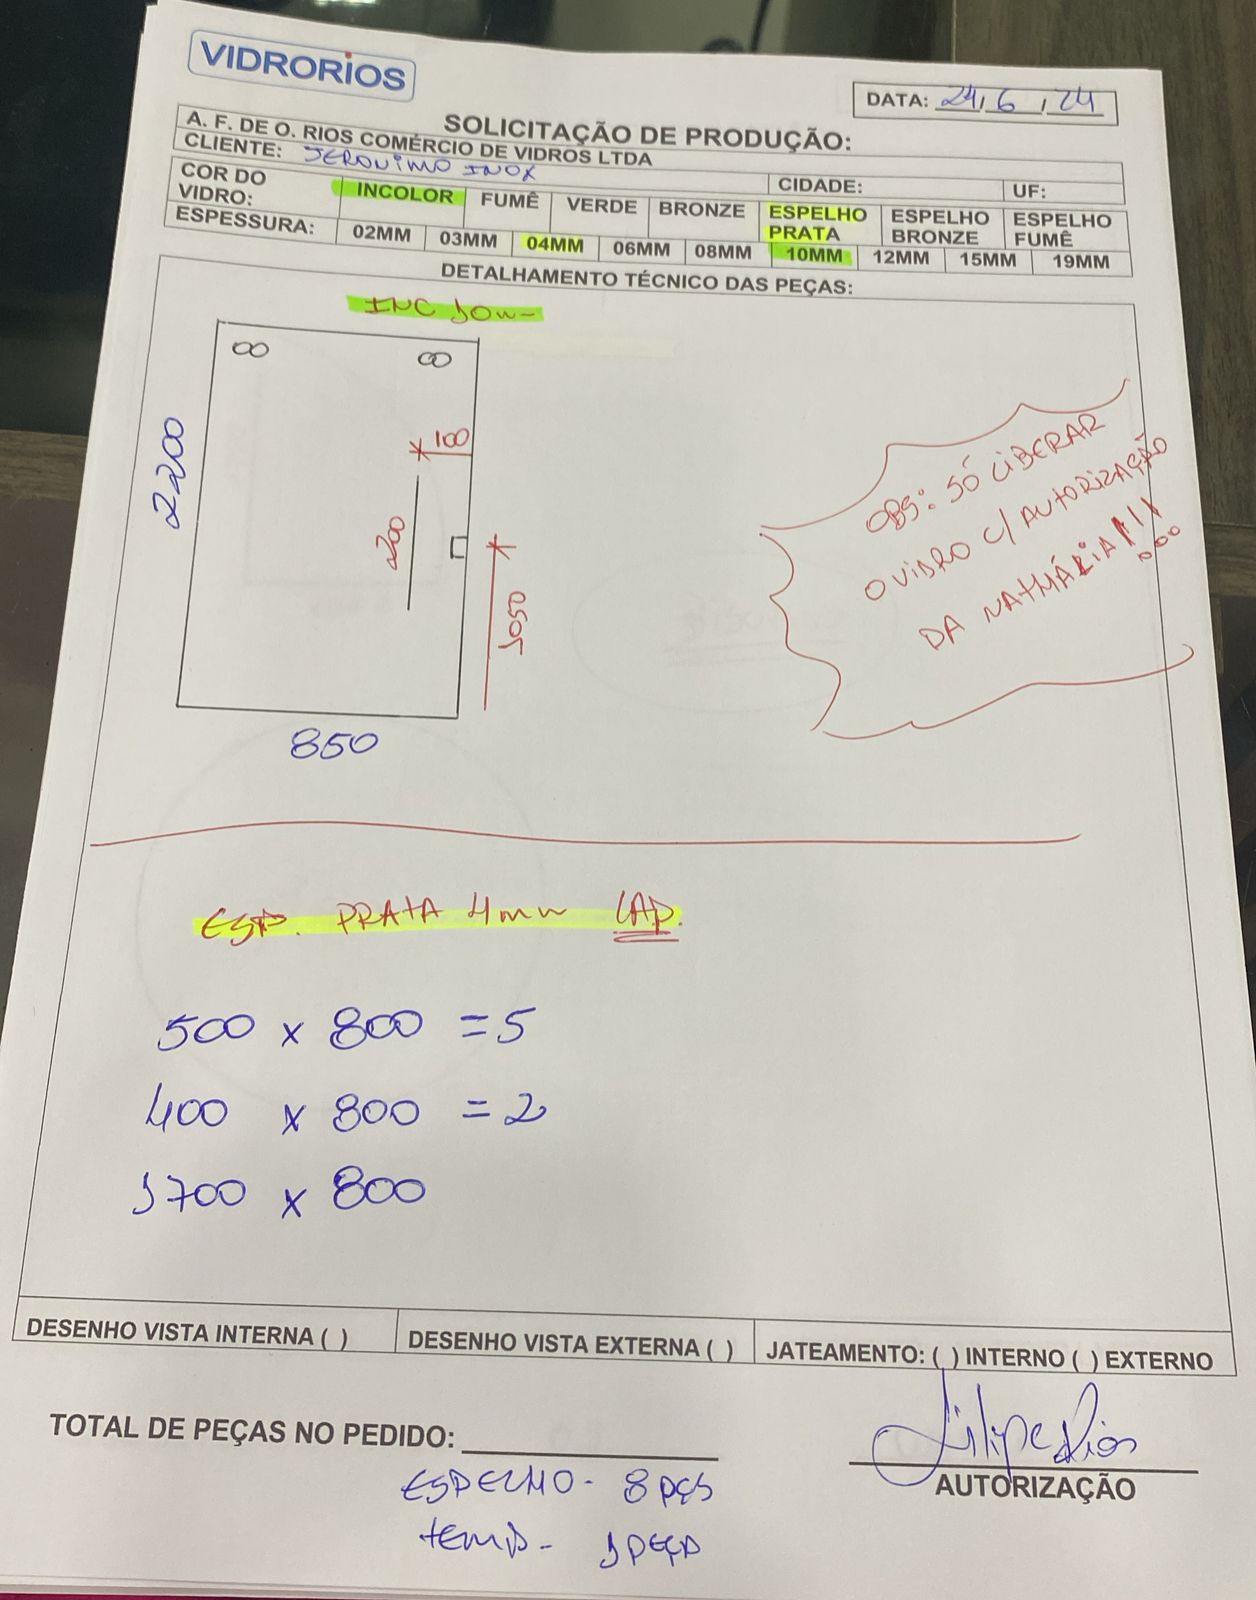 VIDRORIOS
DATA: 24, 6, 24
SOLICITAÇÃO DE PRODUÇÃO:
A. F. DE O. RIOS COMÉRCIO DE VIDROS LTDA
CLIENTE: JERONIMO INOX
CIDADE: UF:
COR DO VIDRO: INCOLOR FUMÊ VERDE BRONZE ESPELHO PRATA ESPELHO BRONZE ESPELHO FUMÊ
ESPESSURA: 02MM 03MM 04MM 06MM 08MM 10MM 12MM 15MM 19MM
DETALHAMENTO TÉCNICO DAS PEÇAS:
INC 10m
100
2200
200
1050
850
OBS: SÓ LIBERAR
O VIDRO C/ AUTORIZAÇÃO
DA NATHÁLIA!!!
ESP. PRATA 4mm LAP.
500 x 800 = 5
400 x 800 = 2
1700 x 800
DESENHO VISTA INTERNA ( )
DESENHO VISTA EXTERNA ( )
JATEAMENTO: ( ) INTERNO ( ) EXTERNO
TOTAL DE PEÇAS NO PEDIDO:
Filipe Rios
AUTORIZAÇÃO
ESPELHO - 8 PÇS
temp - 1 PEÇA